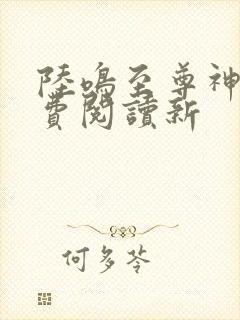 陸鳴至尊神
費閱讀新
何多苓